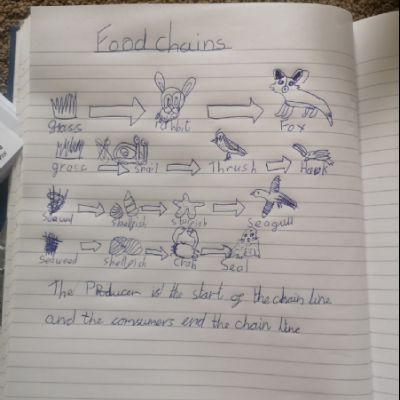 Food chains
grass rabbit Fox
grass Snail Thrush Hawk
Seaweed Shellfish starfish Seagull
Seaweed Shellfish Crab Seal
The Producer is the start of the chain line
and the comsumers end the chain line